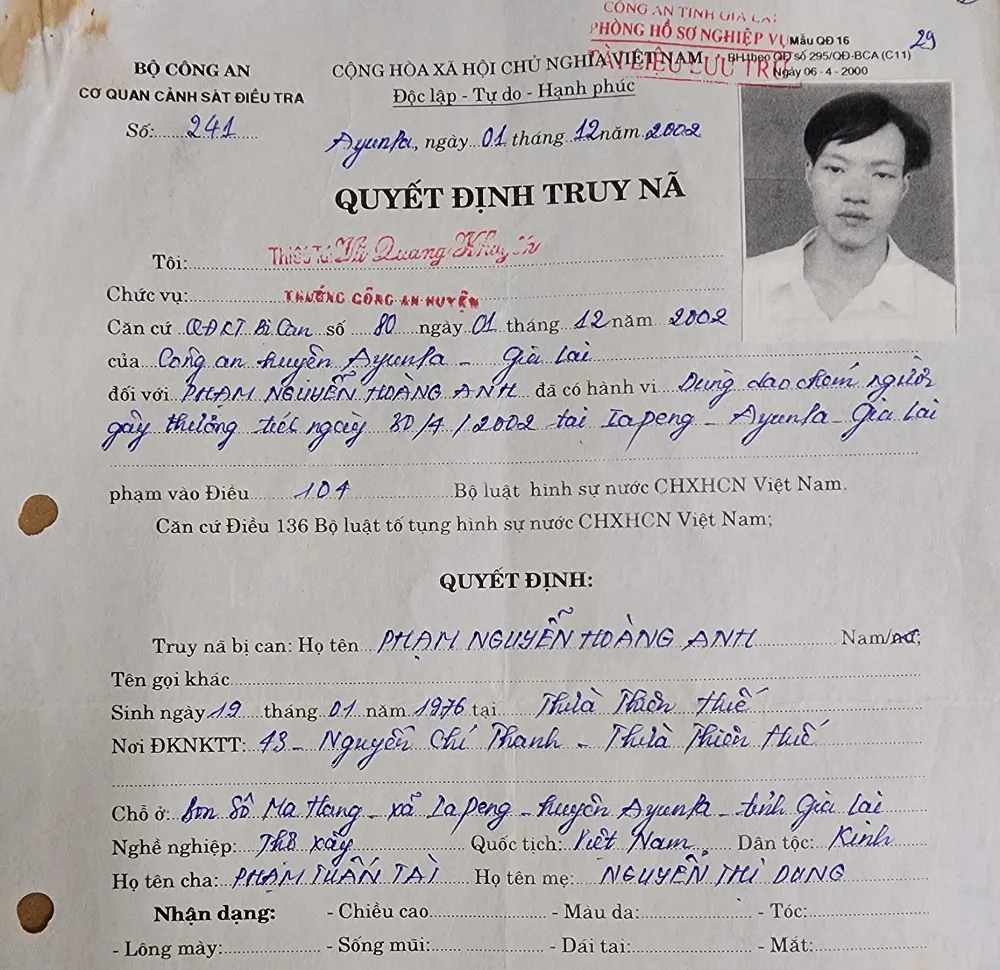 CÔNG AN TỈNH GIA LAI
PHÒNG HỒ SƠ NGHIỆP VỤ
TÀI LIỆU LƯU TRỮ
Mẫu QĐ 16
BH theo QĐ số 295/QĐ-BCA (C11)
Ngày 06 - 4 - 2000
29
BỘ CÔNG AN
CƠ QUAN CẢNH SÁT ĐIỀU TRA
Số: 241
CỘNG HÒA XÃ HỘI CHỦ NGHĨA VIỆT NAM
Độc lập - Tự do - Hạnh phúc
Ayunpa, ngày 01 tháng 12 năm 2002
QUYẾT ĐỊNH TRUY NÃ
Tôi: Thiếu Tá Quang
Chức vụ: TRƯỞNG CÔNG AN HUYỆN
Căn cứ QĐKT Bị Can số 80 ngày 01 tháng 12 năm 2002
của Công an huyện Ayunpa - Gia Lai
đối với PHẠM NGUYỄN HOÀNG ANH đã có hành vi Dùng dao chém người
gây thương tích ngày 30/4/2002 tại Iapeng - Ayunpa - Gia Lai
phạm vào Điều 104 Bộ luật hình sự nước CHXHCN Việt Nam.
Căn cứ Điều 136 Bộ luật tố tụng hình sự nước CHXHCN Việt Nam;
QUYẾT ĐỊNH:
Truy nã bị can: Họ tên PHẠM NGUYỄN HOÀNG ANH Nam/nữ;
Tên gọi khác
Sinh ngày 19 tháng 01 năm 1976 tại Thừa Thiên Huế
Nơi ĐKNKTT: 43 - Nguyễn Chí Thanh - Thừa Thiên Huế
Chỗ ở: Bon Sô Ma Hang - xã Iapeng - huyện Ayunpa - tỉnh Gia Lai
Nghề nghiệp: Thợ xây Quốc tịch: Việt Nam. Dân tộc: Kinh
Họ tên cha: PHẠM TUẤN TÀI Họ tên mẹ: NGUYỄN THỊ DUNG
Nhận dạng: - Chiều cao - Màu da: - Tóc:
- Lông mày: - Sống mũi: - Dái tai: - Mắt: